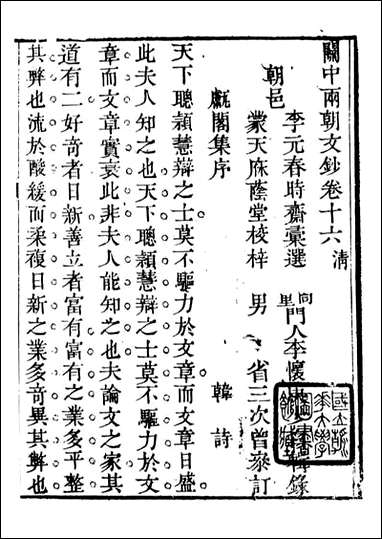 關中兩朝文鈔卷十六 清
李元春時齋彙選
同里門人李懷 輯錄
朝邑
蒙天庥蔭堂校梓 男 省三次曾叅訂
甌閣集序 韓詩
天下聰穎慧辯之士莫不驅力於文章而文章日盛
此夫人知之也天下聰穎慧辯之士莫不驅力於文
章而文章實衰此非夫人能知之也夫論文之家其
道有二好奇者日新善立者富有富有之業多平整
其弊也流於酸緩而柔複日新之業多奇異其弊也